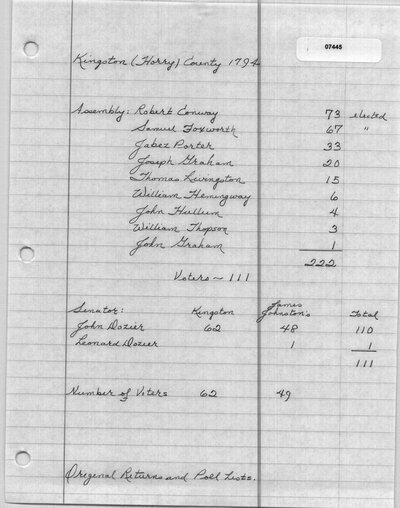 07445
Kingston (Horry) County 1794
Assembly: Robert Conway 73 elected
Samuel Foxworth 67 "
Jabez Porter 33
Joseph Graham 20
Thomas Livingston 15
William Hemingway 6
John Hullum 4
William Thopson 3
John Graham 1
222
Voters ~ 111
Senator: Kingston James Johnston's Total
John Dozier 62 48 110
Leonard Dozier 1 1
111
Number of Voters 62 49
Original Returns and Poll Lists.